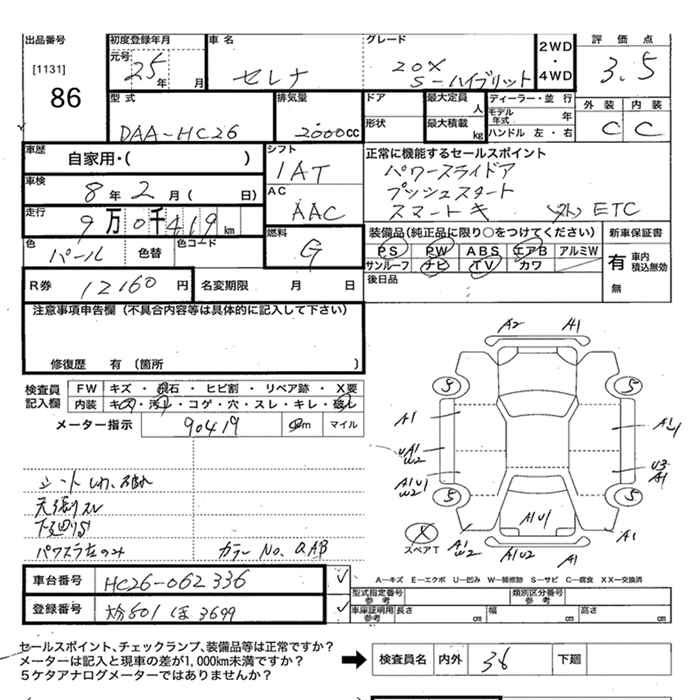 出品番号
[1131]
86
初度登録年月
元号
25年 月
車名
セレナ
グレード
20X
S-ハイブリット
2WD
・
4WD
評価点
3.5
型式
DAA-HC26
排気量
2000cc
ドア
形状
最大定員 人
最大積載 kg
ディーラー・並行
モデル年式 年
ハンドル 左・右
外装 内装
C C
車歴
自家用・( )
シフト
1AT
正常に機能するセールスポイント
パワースライドア
プッシュスタート
スマートキ ETC
車検
8年2月( 日)
AC
AAC
走行
9万0千419km
装備品(純正品に限り○をつけてください)
PS PW ABS エアB アルミW
サンルーフ ナビ TV カワ
後日品
新車保証書
有
無
車内
積込無効
色
パール
色替
色コード
燃料
G
R券
12160円
名変期限 月 日
注意事項申告欄(不具合内容等は具体的に記入して下さい)
修復歴 有(箇所 )
検査員
記入欄
FW キズ・飛石・ヒビ割・リペア跡・X要
内装 キズ・汚れ・コゲ・穴・スレ・キレ・破れ
メーター指示 90419 km マイル
シート しわ、破れ
天張りスレ
下廻りS
パワスラ左のみ カラーNo、QAB
A2 A1
5 5
A1 A4
UA1
W2
U3
A1
A1U1
W2
5 5
A1U1
X
スペアT
A1
W2
A1U2 A1 A1
車台番号 HC26-062336
登録番号 大分501 ほ3699
A-キズ E-エクボ U-凹み W-補修跡 S-サビ C-腐食 XX-交換済
型式指定番号
参考
類別区分番号
参考
車庫証明用
参考
長さ cm 幅 cm 高さ cm
セールスポイント、チェックランプ、装備品等は正常ですか?
メーターは記入と現車の差が1,000km未満ですか?
5ケタアナログメーターではありませんか?
検査員名 内外 38 下廻